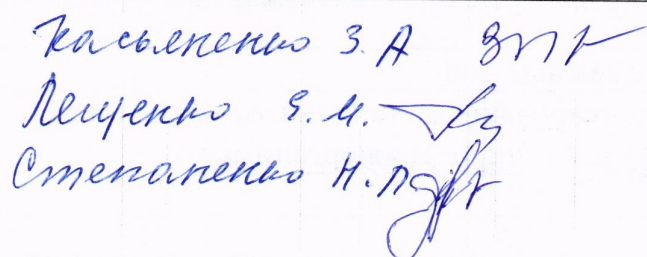 Касьяненко З. А
Лещенко Є. М.
Степаненко Н. П